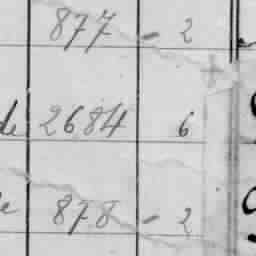 877 - 2
de 2684 6
e 878 - 2